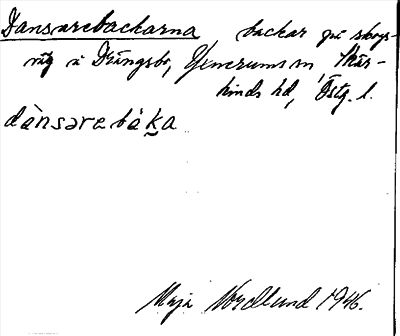 Dansarebackarna, backar på skogs-
väg å Drängsbo, Yxnerums sn Skär-
kinds hd, Östg. l.
dànsarebàka
Maja Nordlund 1946.